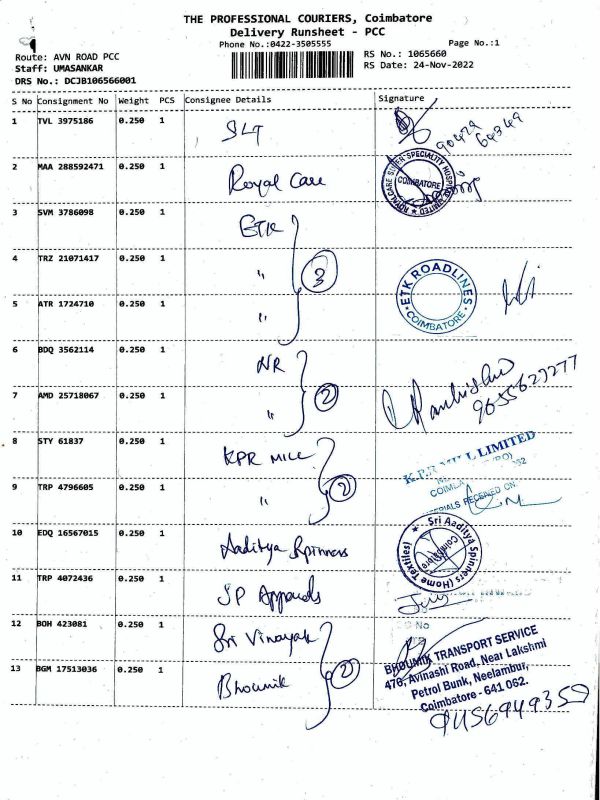 THE PROFESSIONAL COURIERS, Coimbatore
Delivery Runsheet - PCC
Phone No.:0422-3505555
Page No.:1
Route: AVN ROAD PCC
RS No.: 1065660
Staff: UMASANKAR
RS Date: 24-Nov-2022
DRS No.: DCJB106566001
S No Consignment No Weight PCS Consignee Details Signature
1 TVL 3975186 0.250 1 SLT
2 MAA 288592471 0.250 1 Royal Care
ROYALCARE SUPER SPECIALITY HOSPITAL LIMITED
COIMBATORE
3 SVM 3786098 0.250 1 ETK
4 TRZ 21071417 0.250 1 " 3
ETK ROADLINES
COIMBATORE
5 ATR 1724710 0.250 1 "
6 BDQ 3562114 0.250 1 NR
7 AMD 25718067 0.250 1 " 2
8 STY 61837 0.250 1 KPR MILL
K.P.R MILL LIMITED
9 TRP 4796605 0.250 1 " 2
RIALS RECEIVED ON
10 EDQ 16567015 0.250 1 Aaditya Spinners
Sri Aaditya Spinners (Home Textiles)
Coimbatore
11 TRP 4072436 0.250 1 SP Apparels
12 BOH 423081 0.250 1 Sri Vinayak
13 BGM 17513036 0.250 1 Bhoumik 2
BHOUMIK TRANSPORT SERVICE
476, Avinashi Road, Near Lakshmi
Petrol Bunk, Neelambur,
Coimbatore - 641 062.